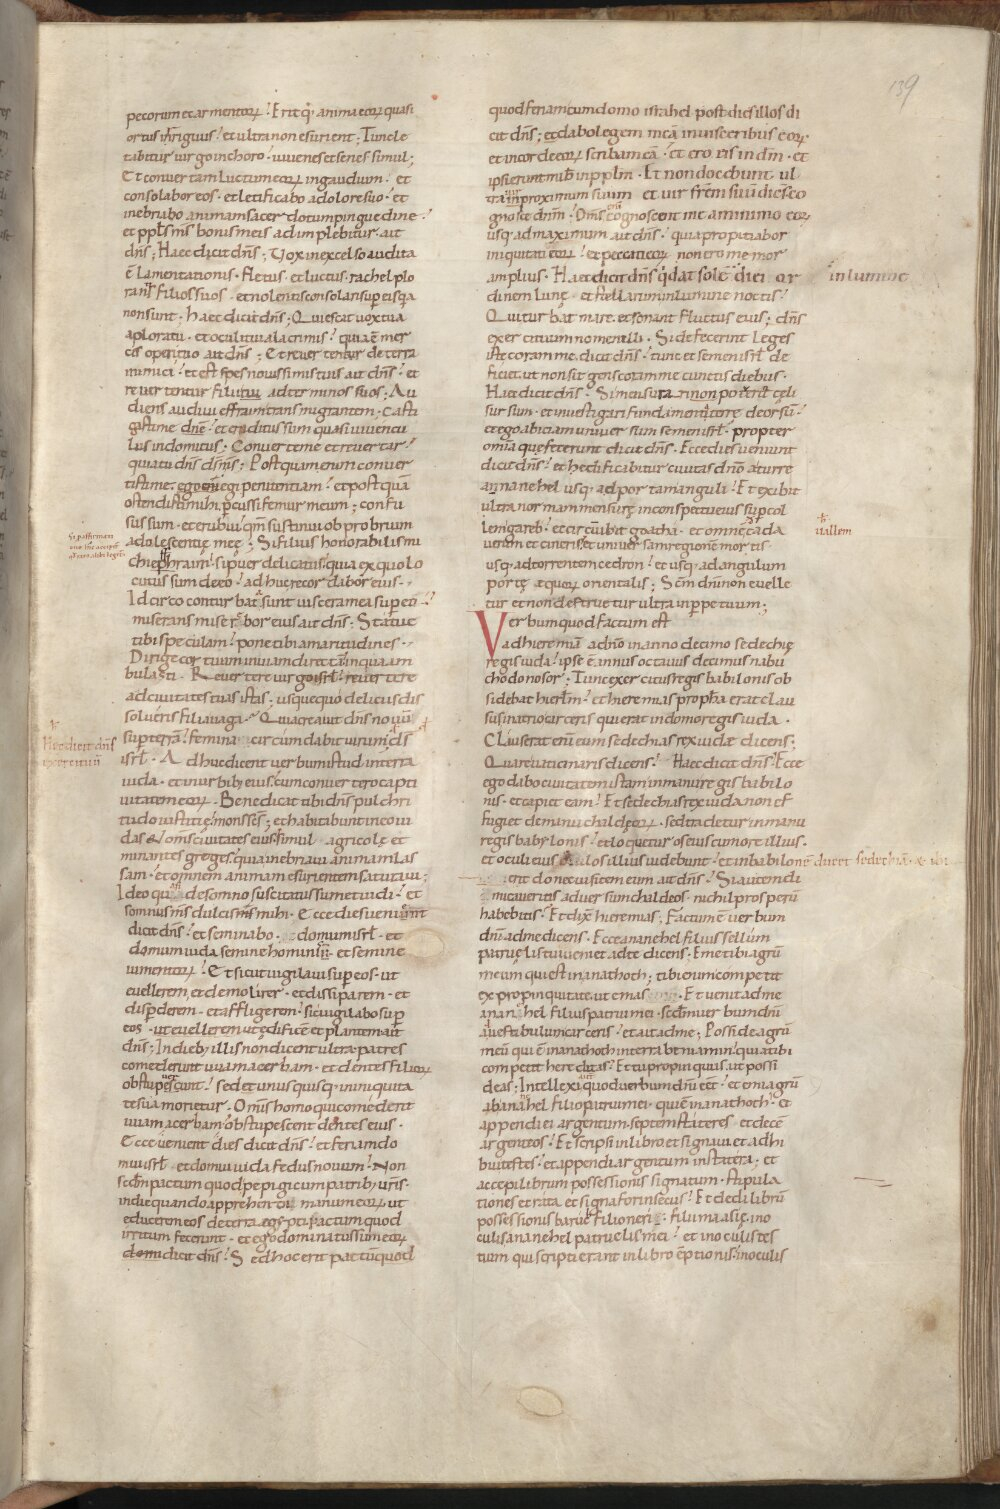 139
pecorum et armentoꝝ. Eritq; anima eoꝝ quasi
ortus irriguus. et ultra non esurient. Tunc le
tabitur uirgo in choro. iuuenes et senes simul;
Et conuertam luctum eoꝝ in gaudium. et
consolabor eos. et letificabo a dolore suo. et
inebriabo animam sacerdotum pinguedine.
et ppl̄s m̄s bonis meis adimplebitur. ait
dn̄s; Haec dicit dn̄s; Uox in excelso audita
ē lamentationis. fletus. et luctus. rachel plo
rantis filios suos. et nolentis consolari sup eis q̄a
non sunt. haec dicit dn̄s; Quiescat uox tua
a ploratu. et oculi tui a lacrimis. quia ē mer
ces operi tuo ait dn̄s; Et reuertentur de terra
inimici. et est spes nouissimis tuis ait dn̄s. et
reuertentur filii tui ad terminos suos; Au
diens audiui effraim transmigrantem; Casti
gasti me dn̄e. et eruditus sum quasi iuuencu
lus indomitus; Conuerte me et reuertar.
quia tu dn̄s ds̄ ms̄; Postquam enim conuer
tisti me. egi penitentiam. et postquā
ostendisti mihi. pcussi femur meum; confu
sus sum. et erubui. qm̄ sustinui obprobrium
adolescentię meę; Si filius honorabilis mi
chi ephraim. si puer delicatus. quia ex quo lo
cutus sum de eo. adhuc recordabor eius.
Idcirco conturbata sunt uiscera mea sup eū.
miserans miserebor eius ait dn̄s; Statue
tibi speculam. pone tibi amaritudines.
Dirige cor tuum in uiam directā in qua am
bulasti. Reuertere uirgo isrl̄. reuertere
ad ciuitates tuas istas. usquequo deliciis dis
solueris filia uaga. Quia creauit dn̄s nouū
sup terrā. femina circumdabit uirum; ds̄
isrl̄. Adhuc dicent uerbum istud in terra
iuda. et in urbibꝫ eius. cum conuertero capti
uitatem eoꝝ. Benedicat tibi dn̄s pulchri
tudo iustitię mons scs̄; et habitabunt in eo iu
das et om̄s ciuitates eius simul. agricolę et
minantes greges. quia inebriaui animam las
sam. et omnem animam esurientem saturaui;
Ideo quasi de somno suscitatus sum et uidi. et
somnus m̄s dulcis mihi. Ecce dies ueniunt
dicit dn̄s. et seminabo domum isrl̄. et
domum iuda semine hominū. et semine
iumentoꝝ. Et sicut uigilaui sup eos. ut
euellerem. et demolirer. et dissiparem. et
disperderem. et affligerem. sic uigilabo sup
eos. ut edificem et plantem. ait
dn̄s; In diebꝫ illis non dicent ultra. patres
comederunt uuam acerbam. et dentes filioꝝ
obstupescunt. sed et unusquisq; in iniquita
te sua morietur. Omnis homo qui comederit
uuam acerbam. obstupescent dentes eius.
Ecce uenient dies dicit dn̄s. et feriam do
mui isrl̄. et domui iuda fedus nouum. Non
sedm̄ pactum quod pepigi cum patribꝫ ur̄is.
in die quando apprehendi manum eoꝝ. ut
educerem eos de terra egypti. pactum quod
irritum fecerunt. et ego dominatus sum eoꝝ
dicit dn̄s. Sed hoc erit pactum quod
quod feriam cum domo israhel post dies illos di
cit dn̄s; et dabo legem meā in uisceribus eoꝝ.
et in corde eoꝝ scribam eā. et ero eis in dm̄. et
ipsi erunt mihi in pplm̄. Et non docebunt ul
tra uir proximum suum et uir frēm suū dicens. co
gnosce dnm̄. Om̄s enim cognoscent me a minimo eoꝝ
usq; ad maximum ait dn̄s. quia propitiabor
iniquitati eoꝝ. et peccati eoꝝ non ero memor
amplius. Haec dicit dn̄s q̄ dat solē diei or
in lumine
dinem lunę. et stellarum in lumine noctis.
Qui turbat mare. et sonant fluctus eius; dn̄s
exercituum nomen illi. Si defecerint leges
iste coram me. dicit dn̄s. tunc et semen isrl̄ de
ficiet. ut non sit gens coram me cunctis diebus.
Haec dicit dn̄s. Si mensurari non poterit celi
sursum. et inuestigari fundamenta terre deorsū.
et ego abiciam uniuersum semen isrl̄. propter
omnia quę fecerunt dicit dn̄s. Ecce dies ueniunt
dicit dn̄s. et hedificabitur ciuitas dn̄o a turre
annanehel usq; ad portam anguli. Et exibit
ultra normam mensurę in conspectu eius sup col
lem gareb. et circuibit goatha. et omnē
uallem
cadauerum et cineris. et uniuersam regionem mortis
usq; ad torrentem cedron. et usq; ad angulum
portę equoꝝ orientalis; Scm̄ dnī non euelle
tur et non destruetur ultra in perpetuum;
Verbum quod factum est
ad hieremiā a dnō in anno decimo sedechię
regis iuda. ipse ē annus octauus decimus nabu
chodonosor; Tunc exercitus regis babilonis ob
sidebat hierlm̄. et hieremias propha erat clau
sus in atrio carceris qui erat in domo regis iuda.
Clauserat enī eum sedechias rex iudae dicens;
Quare uaticinaris dicens. Haec dicit dn̄s. Ecce
ego dabo ciuitatem istam in manu regis babilo
nis. et capiet eam. Et sedechias rex iuda non ef
fugiet de manu chaldęoꝝ. sed tradetur in manu
regis babylonis. et loquetur os eius cum ore illius.
et oculi eius oculos illius uidebunt. et in babilonē ducet sedechiā. et ibi
erit donec uisitem eum ait dn̄s. Si autem di
micaueritis aduersum chaldeos. nichil prosperū
habebitis. Et dix̄ hieremias; Factum ē uerbum
dnī ad me dicens. Ecce ananehel filius sellum
patruęlis tui ueniet ad te dicens; Eme tibi agrū
meum qui est in anathoth; tibi enim competit
ex propinquitate ut emas. Et uenit ad me
ananehel filius patrui mei. scdm̄ uerbum dnī
ad uestibulum carceris. et ait ad me; Posside agrū
meū qui ē in anathoth in terra beniamin. quia tibi
competit hereditas. Et tu propinquus. ut possi
deas; Intellexi autem quod uerbum dnī eēt. et emi agrū
ab ananehel filio patrui mei. qui ē in anathoth. et
appendi ei argentum. septem stateres. et decē
argenteos. Et scripsi in libro et signaui. et adhi
bui testes. et appendi argentum in statera; et
accepi librum possessionis signatum. stipula
tiones et rata. et signa forinsecus. Et dedi librū
possessionis baruc filio neri. filii maasię. in o
culis ananehel patruelis mei. et in oculis tes
tium qui scripti erant in libro ēptionis. in oculis